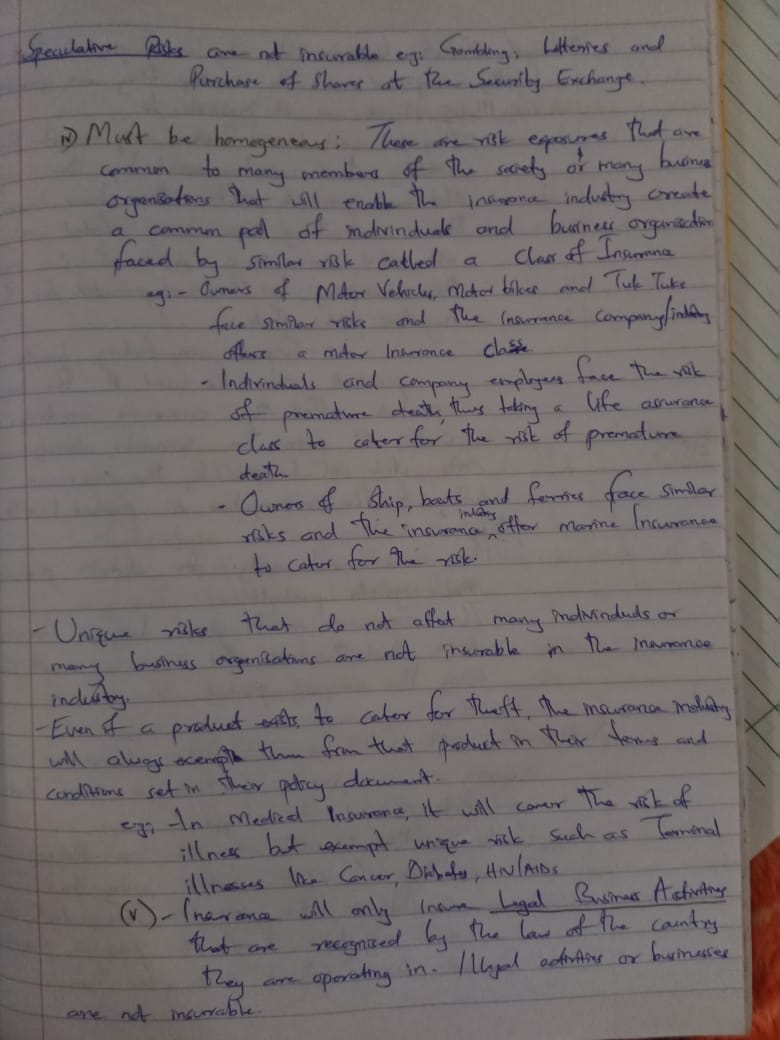 Speculative Risks are not insurable eg: Gambling, Lotteries and
Purchase of Shares at the Security Exchange.
iv) Must be homogeneous: These are risk exposures that are
common to many members of the society or many business
organisations that will enable the insurance industry create
a common pool of individuals and business organisation
faced by similar risk called a Class of Insurance
eg: - Owners of Motor Vehicles, Motor bikes and Tuk Tuks
face similar risks and the insurance company/industry
offers a motor Insurance class
- Individuals and company employees face the risk
of premature death, thus taking a life assurance
class to cater for the risk of premature
death
- Owners of Ship, boats and ferries face similar
risks and the insurance industry offer marine Insurance
to cater for the risk.
- Unique risks that do not affect many individuals or
many business organisations are not insurable in the insurance
industry.
- Even if a product exists to cater for theft, the insurance industry
will always exempt them from that product in their terms and
conditions set in their policy document.
eg; In Medical Insurance, it will cover the risk of
illness but exempt unique risk such as Terminal
illnesses like Cancer, Diabetes, HIV/AIDs
(v) - Insurance will only insure Legal Business Activities
that are recognised by the law of the country
they are operating in. Illegal activities or businesses
are not insurable.